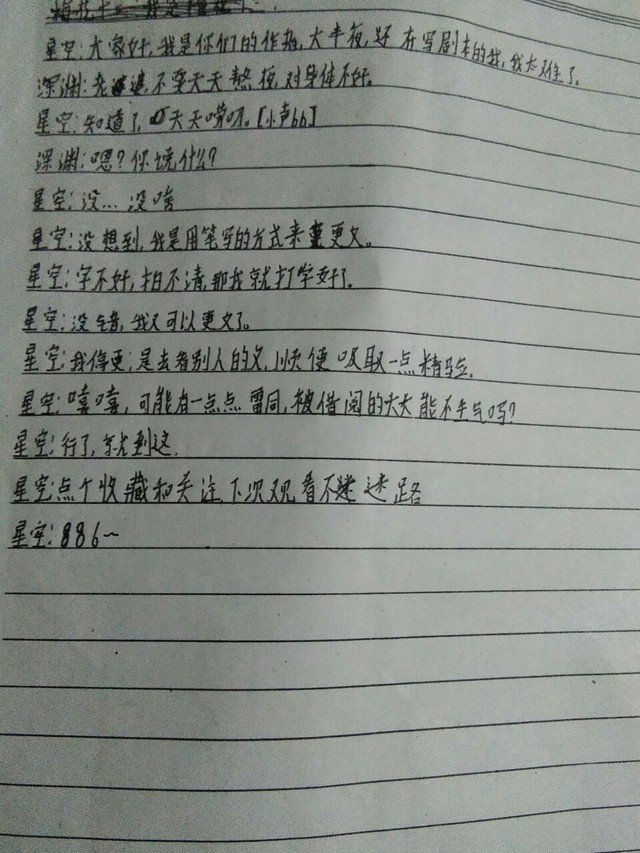 星空:大家好,我是你们的作者,大半夜,还在写剧本的我,我太难了。
深渊:先不要天天熬夜,对身体不好。
星空:知道了,天天唠叨。[小声bb]
深渊:嗯?你说什么?
星空:没...没啥
星空:没想到,我是用笔写的方式来更文。
星空:字不好,拍不清,那我就打字好了。
星空:没错,我又可以更文了。
星空:我停更,是去看别人的文,顺便吸取一点精验。
星空:嘻嘻,可能有一点点雷同,被借阅的大大能不生气吗?
星空:行了,就到这.
星空:点个收藏和关注,下次观看不迷路
星空:886~